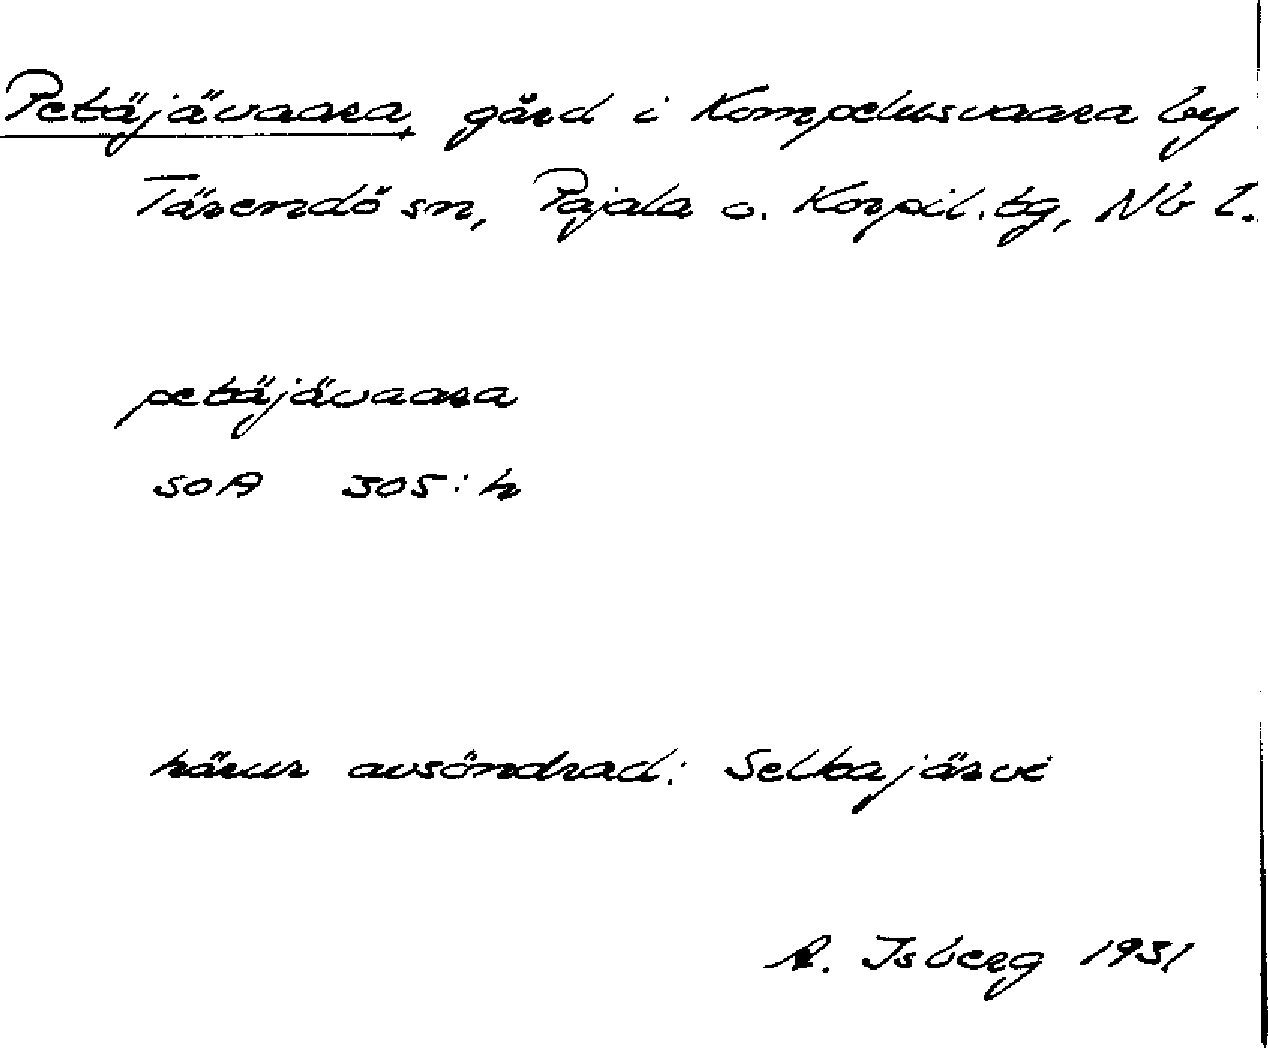 Petäjävaara, gård i Kompelusvaara by
Tärendö sn, Pajala o. Korpil. tg, Nb l.
petäjävaara
SOA 305:h
härur avsöndrad: Seltajärvi
A. Isberg 1931